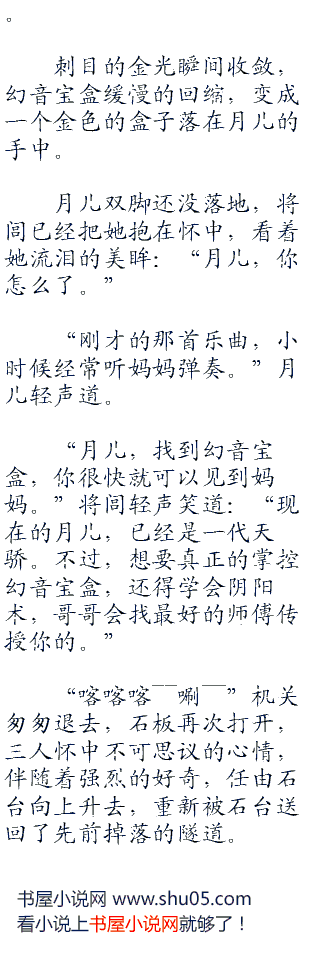 。
刺目的金光瞬间收敛，
幻音宝盒缓慢的回缩，变成
一个金色的盒子落在月儿的
手中。
月儿双脚还没落地，将
闾已经把她抱在怀中，看着
她流泪的美眸：“月儿，你
怎么了。”
“刚才的那首乐曲，小
时候经常听妈妈弹奏。”月
儿轻声道。
“月儿，找到幻音宝
盒，你很快就可以见到妈
妈。”将闾轻声笑道：“现
在的月儿，已经是一代天
骄。不过，想要真正的掌控
幻音宝盒，还得学会阴阳
术，哥哥会找最好的师傅传
授你的。”
“喀喀喀――唰――”机关
匆匆退去，石板再次打开，
三人怀中不可思议的心情，
伴随着强烈的好奇，任由石
台向上升去，重新被石台送
回了先前掉落的隧道。
书屋小说网 www.shu05.com
看小说上书屋小说网就够了！